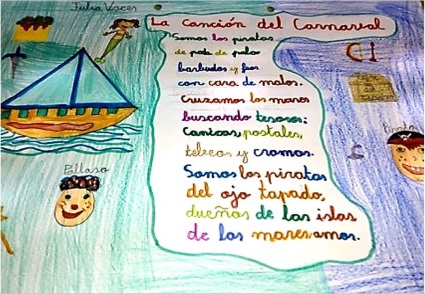 Julia Vacas
La Canción del Carnaval
Somos los piratas
de pata de palo
barbudos y feos
con cara de malos.
Cruzamos los mares
buscando tesoros:
Canicas, postales,
tebeos y cromos.
Somos los piratas
del ojo tapado,
dueños de las islas
de los mares amos.
Pallaso